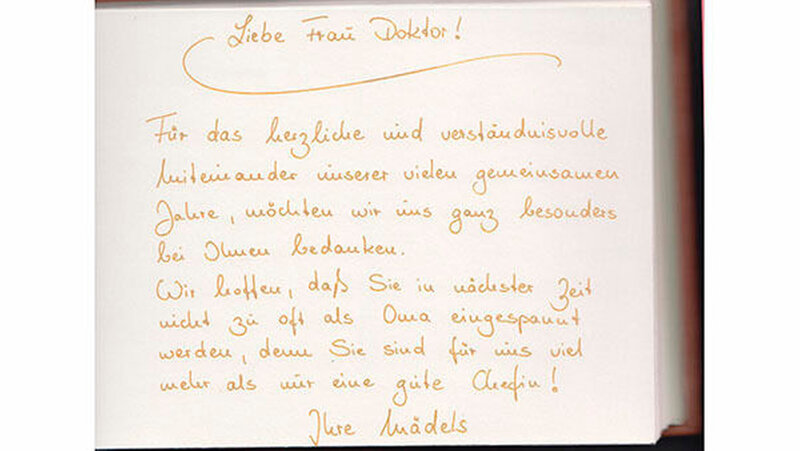 Liebe Frau Doktor!
Für das herzliche und verständnisvolle
Miteinander unserer vielen gemeinsamen
Jahre, möchten wir uns ganz besonders
bei Ihnen bedanken.
Wir hoffen, daß Sie in nächster Zeit
nicht zu oft als Oma eingespannt
werden, denn Sie sind für uns viel
mehr als nur eine gute Chefin!
Ihre Mädels